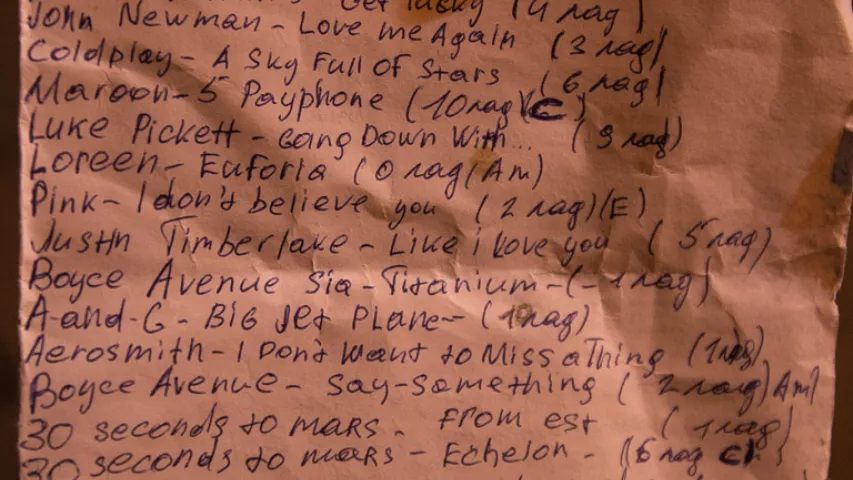 Get Lucky (4 лад)
John Newman - Love me Again (3 лад)
Coldplay - A Sky Full Of Stars (6 лад)
Maroon-5 Payphone (10 лад)(C)
Luke Pickett - Gang Down With... (9 лад)
Loreen - Euforia (0 лад(Am)
Pink - I don't believe you (2 лад)(E)
Justin Timberlake - Like i love you (5 лад)
Boyce Avenue Sia - Titanium - (-1 лад)
A-and-G - Big Jet Plane - (1 лад)
Aerosmith - I Don't Want to Miss a Thing (1 лад)
Boyce Avenue - Say-Something (2 лад) Am)
30 seconds to mars - From est (1 лад)
30 seconds to mars - Echelon - (6 лад